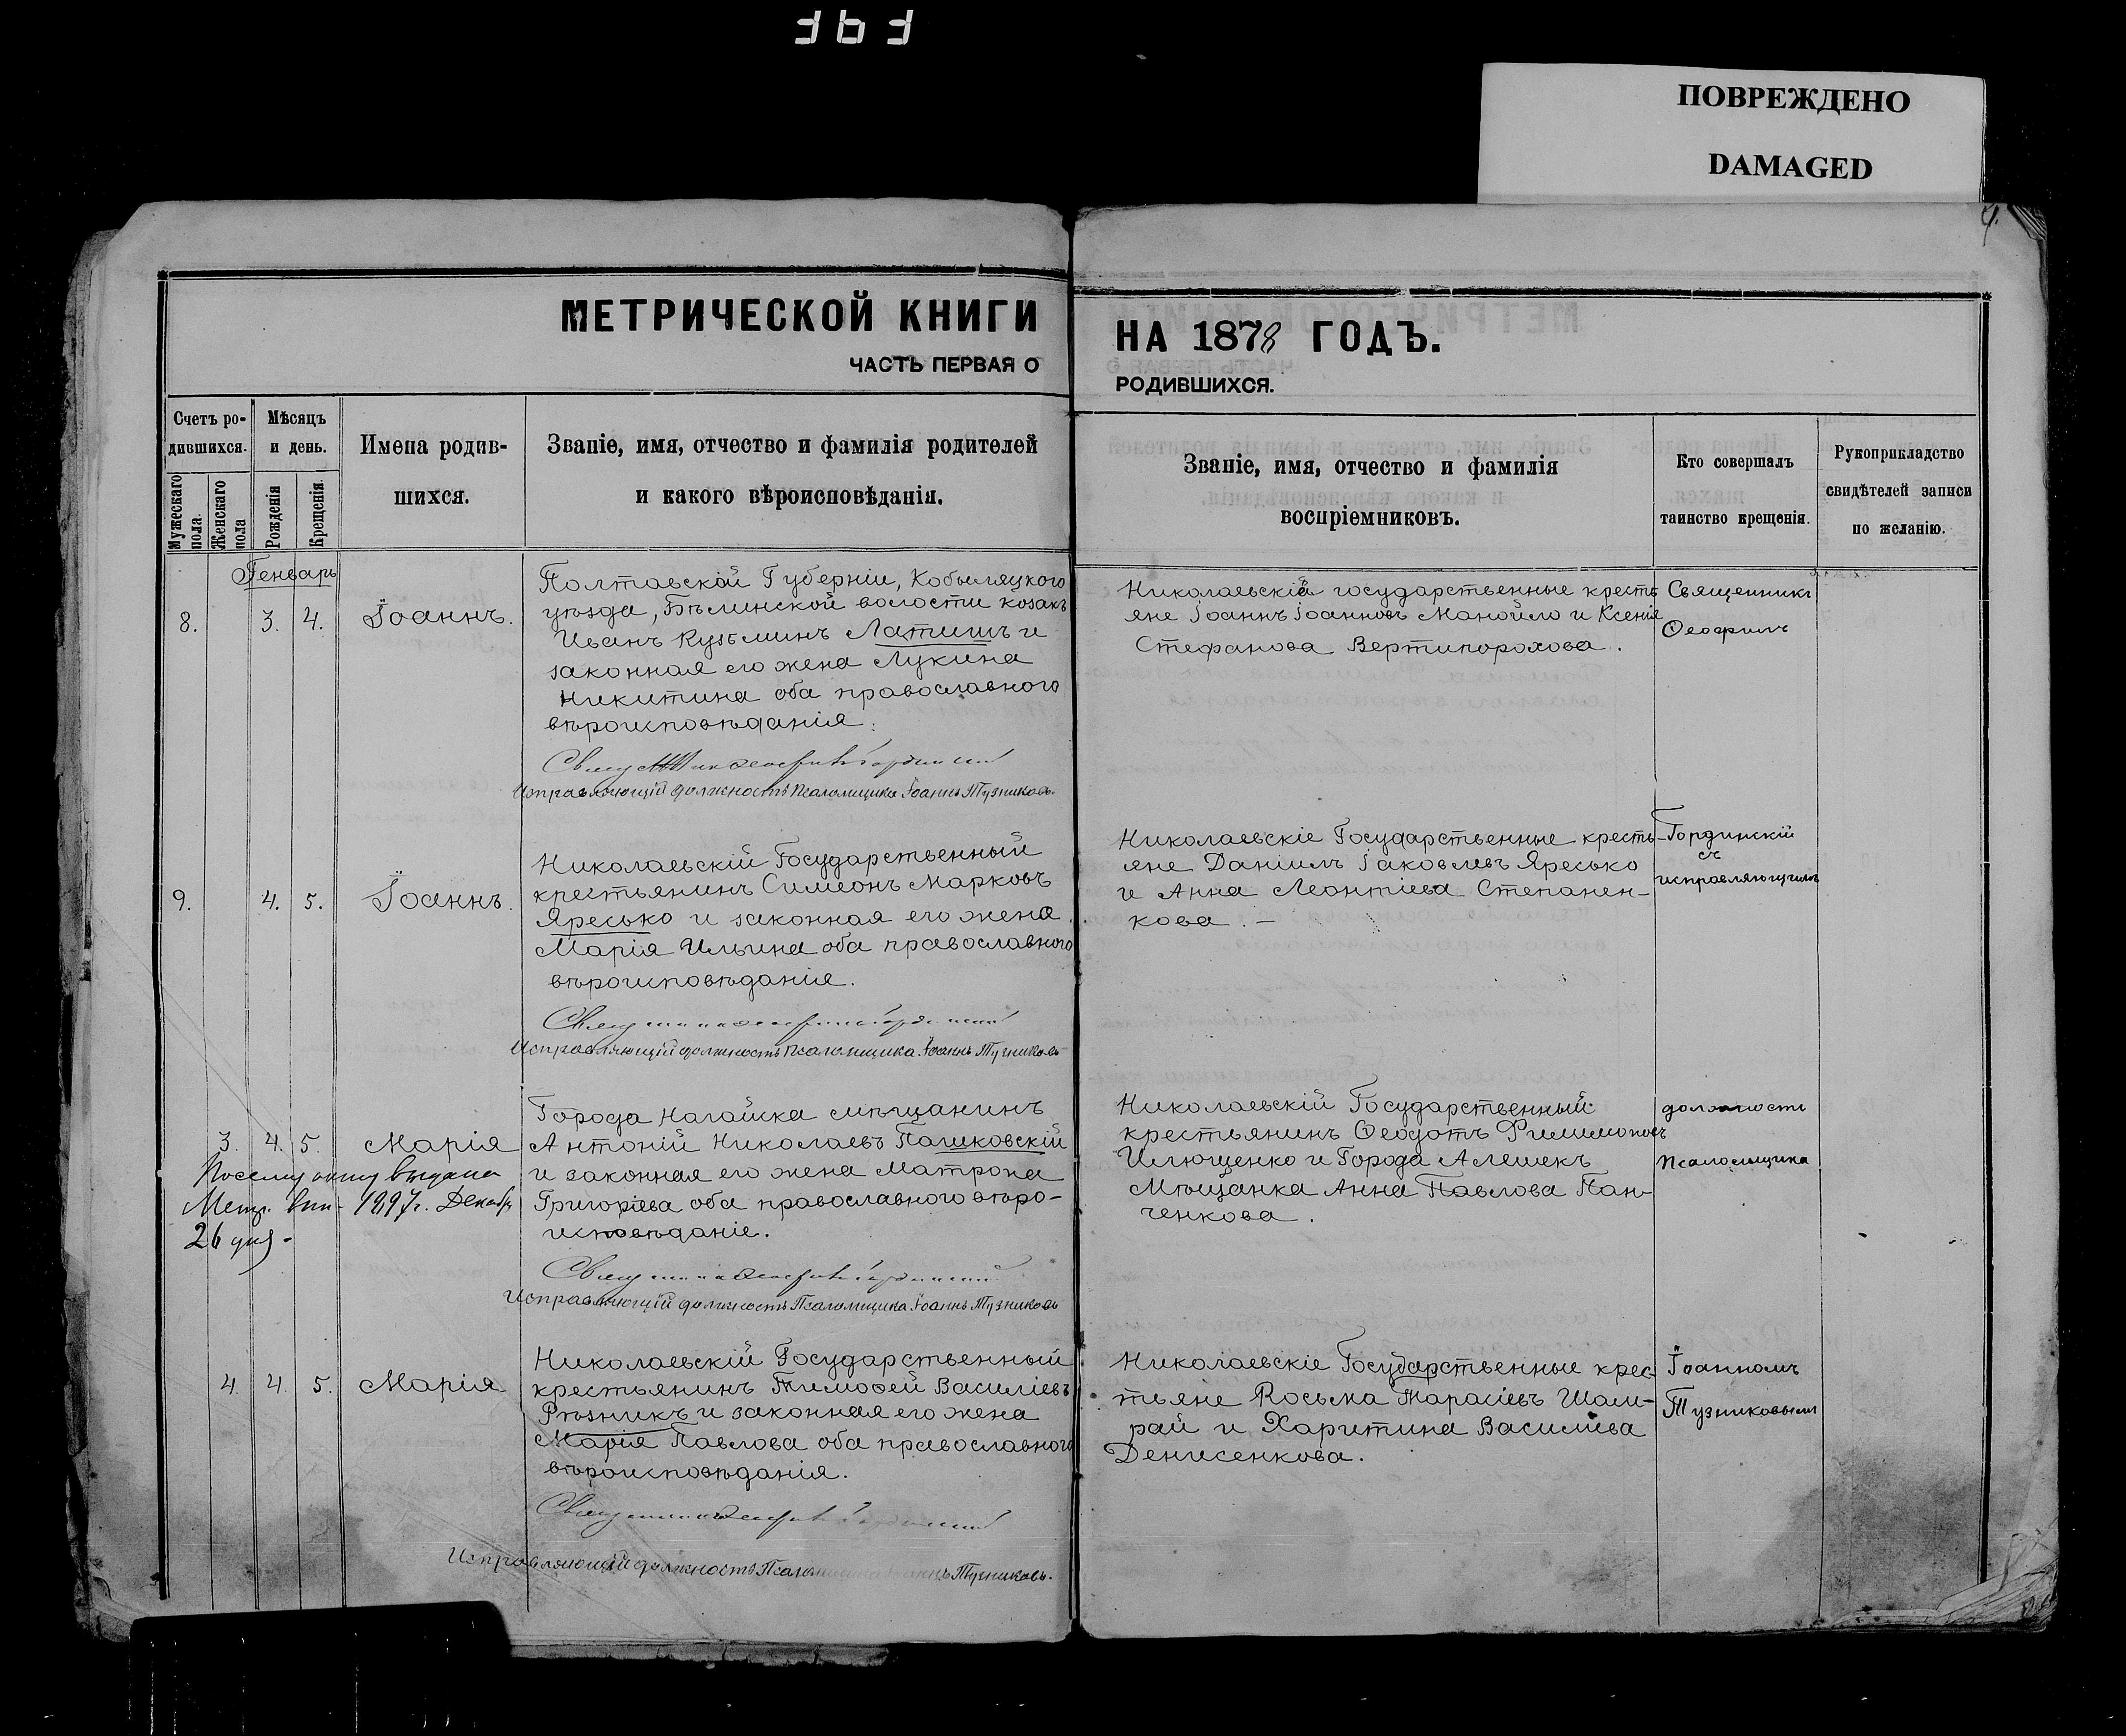 ПОВРЕЖДЕНО
DAMAGED
МЕТРИЧЕСКОЙ КНИГИ
ЧАСТЬ ПЕРВАЯ О
НА 1878 ГОДЪ.
РОДИВШИХСЯ.
Счетъ ро-
дившихся.
Мужескаго пола.
Женскаго пола
Мѣсяцъ
и день.
Рожденія
Крещенія.
Имена родив-
шихся.
Званіе, имя, отчество и фамилія родителей
и какого вѣроисповѣданія.
Званіе, имя, отчество и фамилія
воспріемниковъ.
Кто совершалъ
таинство крещенія.
Рукоприкладство
свидѣтелей записи
по желанію.
Генварь
8. 3. 4. Іоаннъ.
Полтавской Губерніи, Кобыляцкого
уѣзда, Бѣлинской волости козакъ
Иванъ Кузьминъ Латишъ и
законная его жена Лукина
Никитина оба православного
вѣроисповѣданія.
Исправляющій должность Псаломщика Іоаннъ Тузниковъ.
Николаевскія государственные кресть
яне Іоаннъ Іоанновъ Манойло и Ксенія
Стефанова Вертипорохова.
Священникъ
Ѳеофилъ
9. 4. 5. Іоаннъ.
Николаевскій Государственный
крестьянинъ Симеонъ Марковъ
Яресько и законная его жена
Марія Ильина оба православного
вѣроисповѣданія.
Исправляющій должность Псаломщика Іоаннъ Тузниковъ
Николаевскіе Государственные кресть-
яне Даніилъ Іаковлевъ Яресько
и Анна Леонтіева Степанен-
кова. –
Гординскій
съ
исправляющимъ
3. 4. 5. Марія
Города Нагайска мѣщанинъ
Антоній Николаевъ Пашковскій
и законная его жена Матрона
Григоріева оба православного вѣро-
исповѣданіе.
Исправляющій должность Псаломщика Іоаннъ Тузниковъ
По сему акту выдана
Метр. вып. 1897г. Декабр
26 дня -
Николаевскій Государственный
крестьянинъ Ѳеодотъ Филимоновъ
Илющенко и Города Алешекъ
Мѣщанка Анна Павлова Пан-
ченкова.
должность
Псаломщика
4. 4. 5. Марія
Николаевскій Государственный
крестьянинъ Тимофей Василіевъ
Рѣзникъ и законная его жена
Марія Павлова оба православного
вѣроисповѣданія.
Исправляющій должность Тузниковъ.
Николаевскіе Государственные крес-
тьяне Косьма Тарасіевъ Шам-
рай и Харитина Василіева
Денисенкова.
Іоанномъ
Тузниковымъ